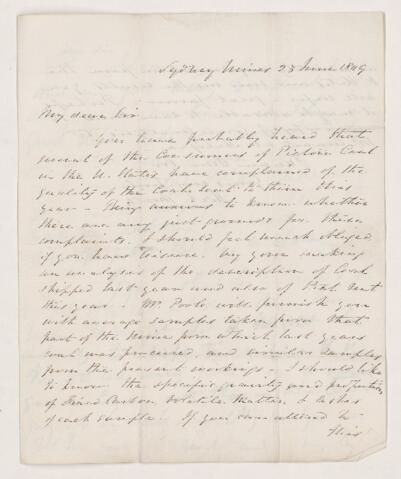 Sydney Mines 23 June 1849
My dear Sir
You have probably heard that
several of the Consumers of Pictou Coal
in the U. States have complained of the
quality of the Coals sent to them this
year - Being anxious to know whether
there are any just grounds for these
complaints, I should feel much obliged
if you have leisure, by your making
an analyses of the description of Coal
shipped last year and also of that sent
this year - Mr. Poole will furnish you
with average samples taken from that
part of the Mine from which last years
coal was procured, and similar samples
from the present workings - I should like
to know the specific gravity and proportions
of fixed Carbon, Volatile Matter, & ashes
of each sample. If you can attend to
this